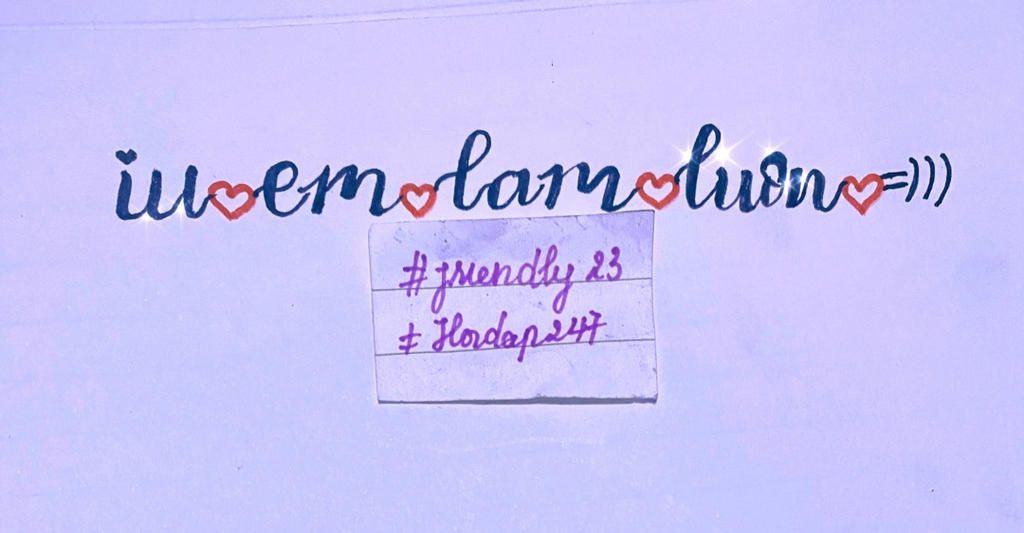 iu em lam luôn =)))
#friendly 23
# Hoidap247